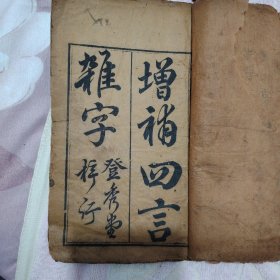 增補四言
雜字
登秀堂
梓行